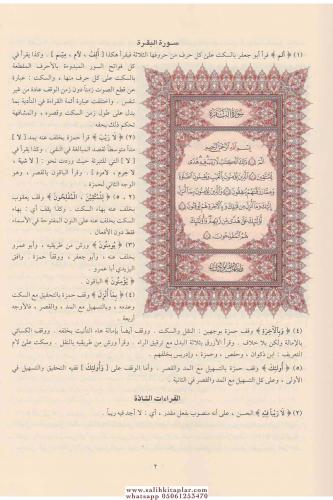 سورة البقرة
(١) ﴿ الم ﴾ قرأ أبو جعفر بالسكت على كل حرف من حروفها الثلاثة فيقرأ هكذا [ أَلِفْ ، لَامْ ، مِيمْ ] . وكذا يقرأ في
كل فواتح السور المبدوءة بالأحرف المقطعة
بالسكت على كل حرف منها ، والسكت : عبارة
عن قطع الصوت زمناً دون زمن الوقف عادة من غير
تنفس . واختلفت عبارة أئمة القراءة في التأدية بما
يدل على طول زمن السكت وقصره ، والمشافهة
تحكم ذلك بحقه .
(٢) ﴿ لَا رَيْبَ ﴾ قرأ حمزة بخلف عنه بمد [ لا ]
مداً متوسطاً لقصد المبالغة في النفي . وكذا يقرأ في
[ لا ] التي للتبرئة حيث وردت نحو : [ لا شية ،
لا إكراه ، لا جرم ] . وقرأ الباقون بالقصر ، وهو
الوجه الثاني لحمزة .
(٢ ، ٥) ﴿ لِلْمُتَّقِينَ ، الْمُفْلِحُونَ ﴾ وقف يعقوب
بخلف عنه بهاء السكت . وكذا يقف أي : بهاء
السكت بخلف عنه على النون المفتوحة في الأسماء
فقط دون الأفعال .
(٣) ﴿ يُومِنُونَ ﴾ ورش من طريقيه ، وأبو عمرو
بخلف عنه ، وأبو جعفر ، ووقفاً حمزة . وافق
اليزيدي أبا عمرو .
﴿ يُؤْمِنُونَ ﴾ الباقون .
(٤) ﴿ بِمَا أُنْزِلَ ﴾ وقف حمزة بالتحقيق مع السكت
وعدمه ، وبالتسهيل مع المد والقصر ، فالأوجه
أربعة .
سورة البقرة
بسم الله الرحمن الرحيم
(٤) ﴿ وَبِالْآخِرَةِ ﴾ وقف حمزة بوجهين : النقل والسكت . ووقف أيضاً بإمالة هاء التأنيث بخلفه . ووقف الكسائي
بالإمالة ولكن بلا خلاف . وقرأ الأزرق بثلاثة البدل مع ترقيق الراء . وقرأ ورش من طريقيه بالنقل . وسكت على لام
التعريف : ابن ذكوان ، وحفص ، وحمزة ، وإدريس بخلفهم .
(٥) ﴿ أُولَئِكَ ﴾ وقف حمزة بالتسهيل مع المد والقصر . وأما الوقف على ﴿ وَأُولَئِكَ ﴾ ففيه التحقيق والتسهيل في
الأولى ، وعلى كل التسهيل مع المد والقصر في الثانية .
القراءات الشاذة
(٢) ﴿ لَا رَيْباً فِيهِ ﴾ الحسن ، على أنه منصوب بفعل مقدر ، أي : لا أجد فيه ريباً .
٢
www.salihkitaplar.com
whatsapp 05061253470